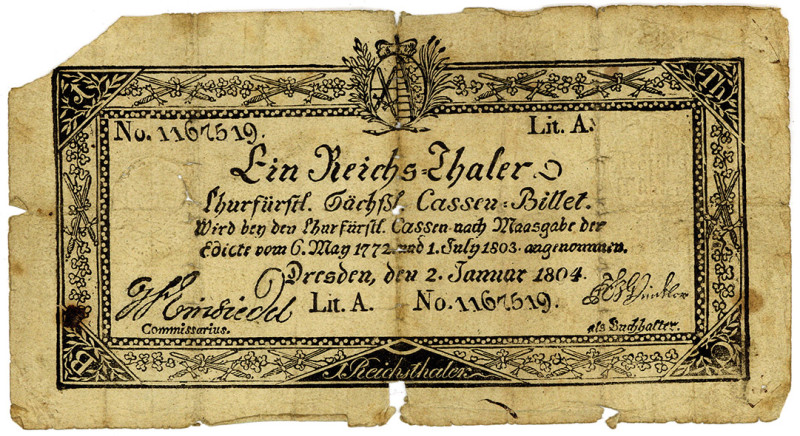 No. 1167519. Lit. A.
Ein Reichs=Thaler
Churfürstl. Sächßl. Cassen=Billet.
Wird bey den Churfürstl. Cassen nach Maasgabe der
Edicte vom 6. May 1772. und 1. July 1803. angenommen.
Dresden, den 2. Januar 1804.
Einsiedel Lit. A. No. 1167519. Winkler
Commissarius. als Buchhalter.
1 Reichsthaler